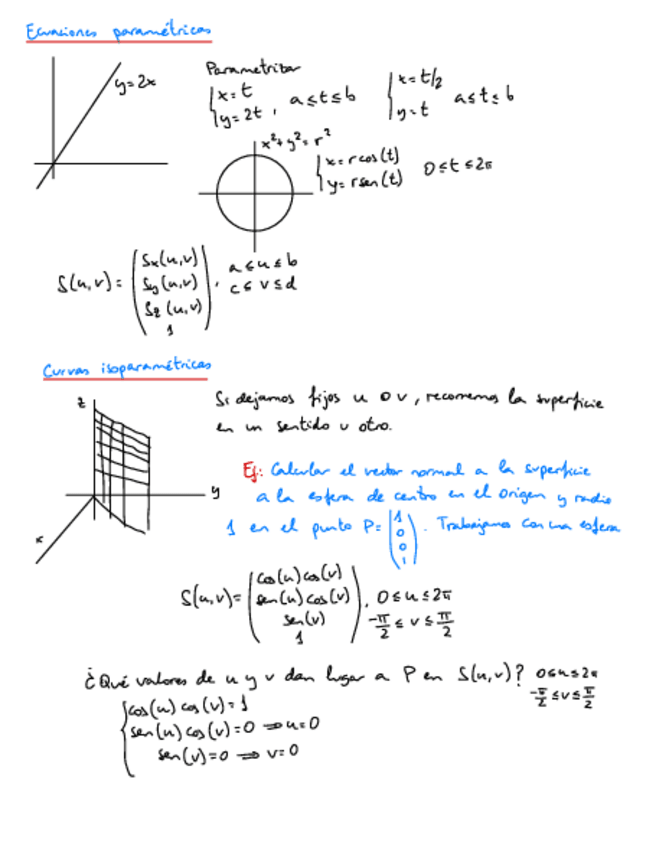 Ecuaciones paramétricas
y=2x
Parametrizar
{x=t
y=2t, a≤t≤b
{x=t/2
y=t a≤t≤b
x²+y²=r²
{x=r cos(t)
y=r sen(t) 0≤t≤2π
S(u,v)= (Sx(u,v)
Sy(u,v)
Sz(u,v)
1), a≤u≤b
c≤v≤d
Curvas isoparamétricas
z
y
x
Si dejamos fijos u o v, recorremos la superficie
en un sentido u otro.
Ej: Calcular el vector normal a la superficie
a la esfera de centro en el origen y radio
1 en el punto P= (1
0
0
1). Trabajamos con una esfera
S(u,v)= (cos(u)cos(v)
sen(u)cos(v)
sen(v)
1), 0≤u≤2π
-π/2≤v≤π/2
¿Qué valores de u y v dan lugar a P en S(u,v)? 0≤u≤2π
-π/2≤v≤π/2
{cos(u)cos(v)=1
sen(u)cos(v)=0 ⇒u=0
sen(v)=0 ⇒ v=0